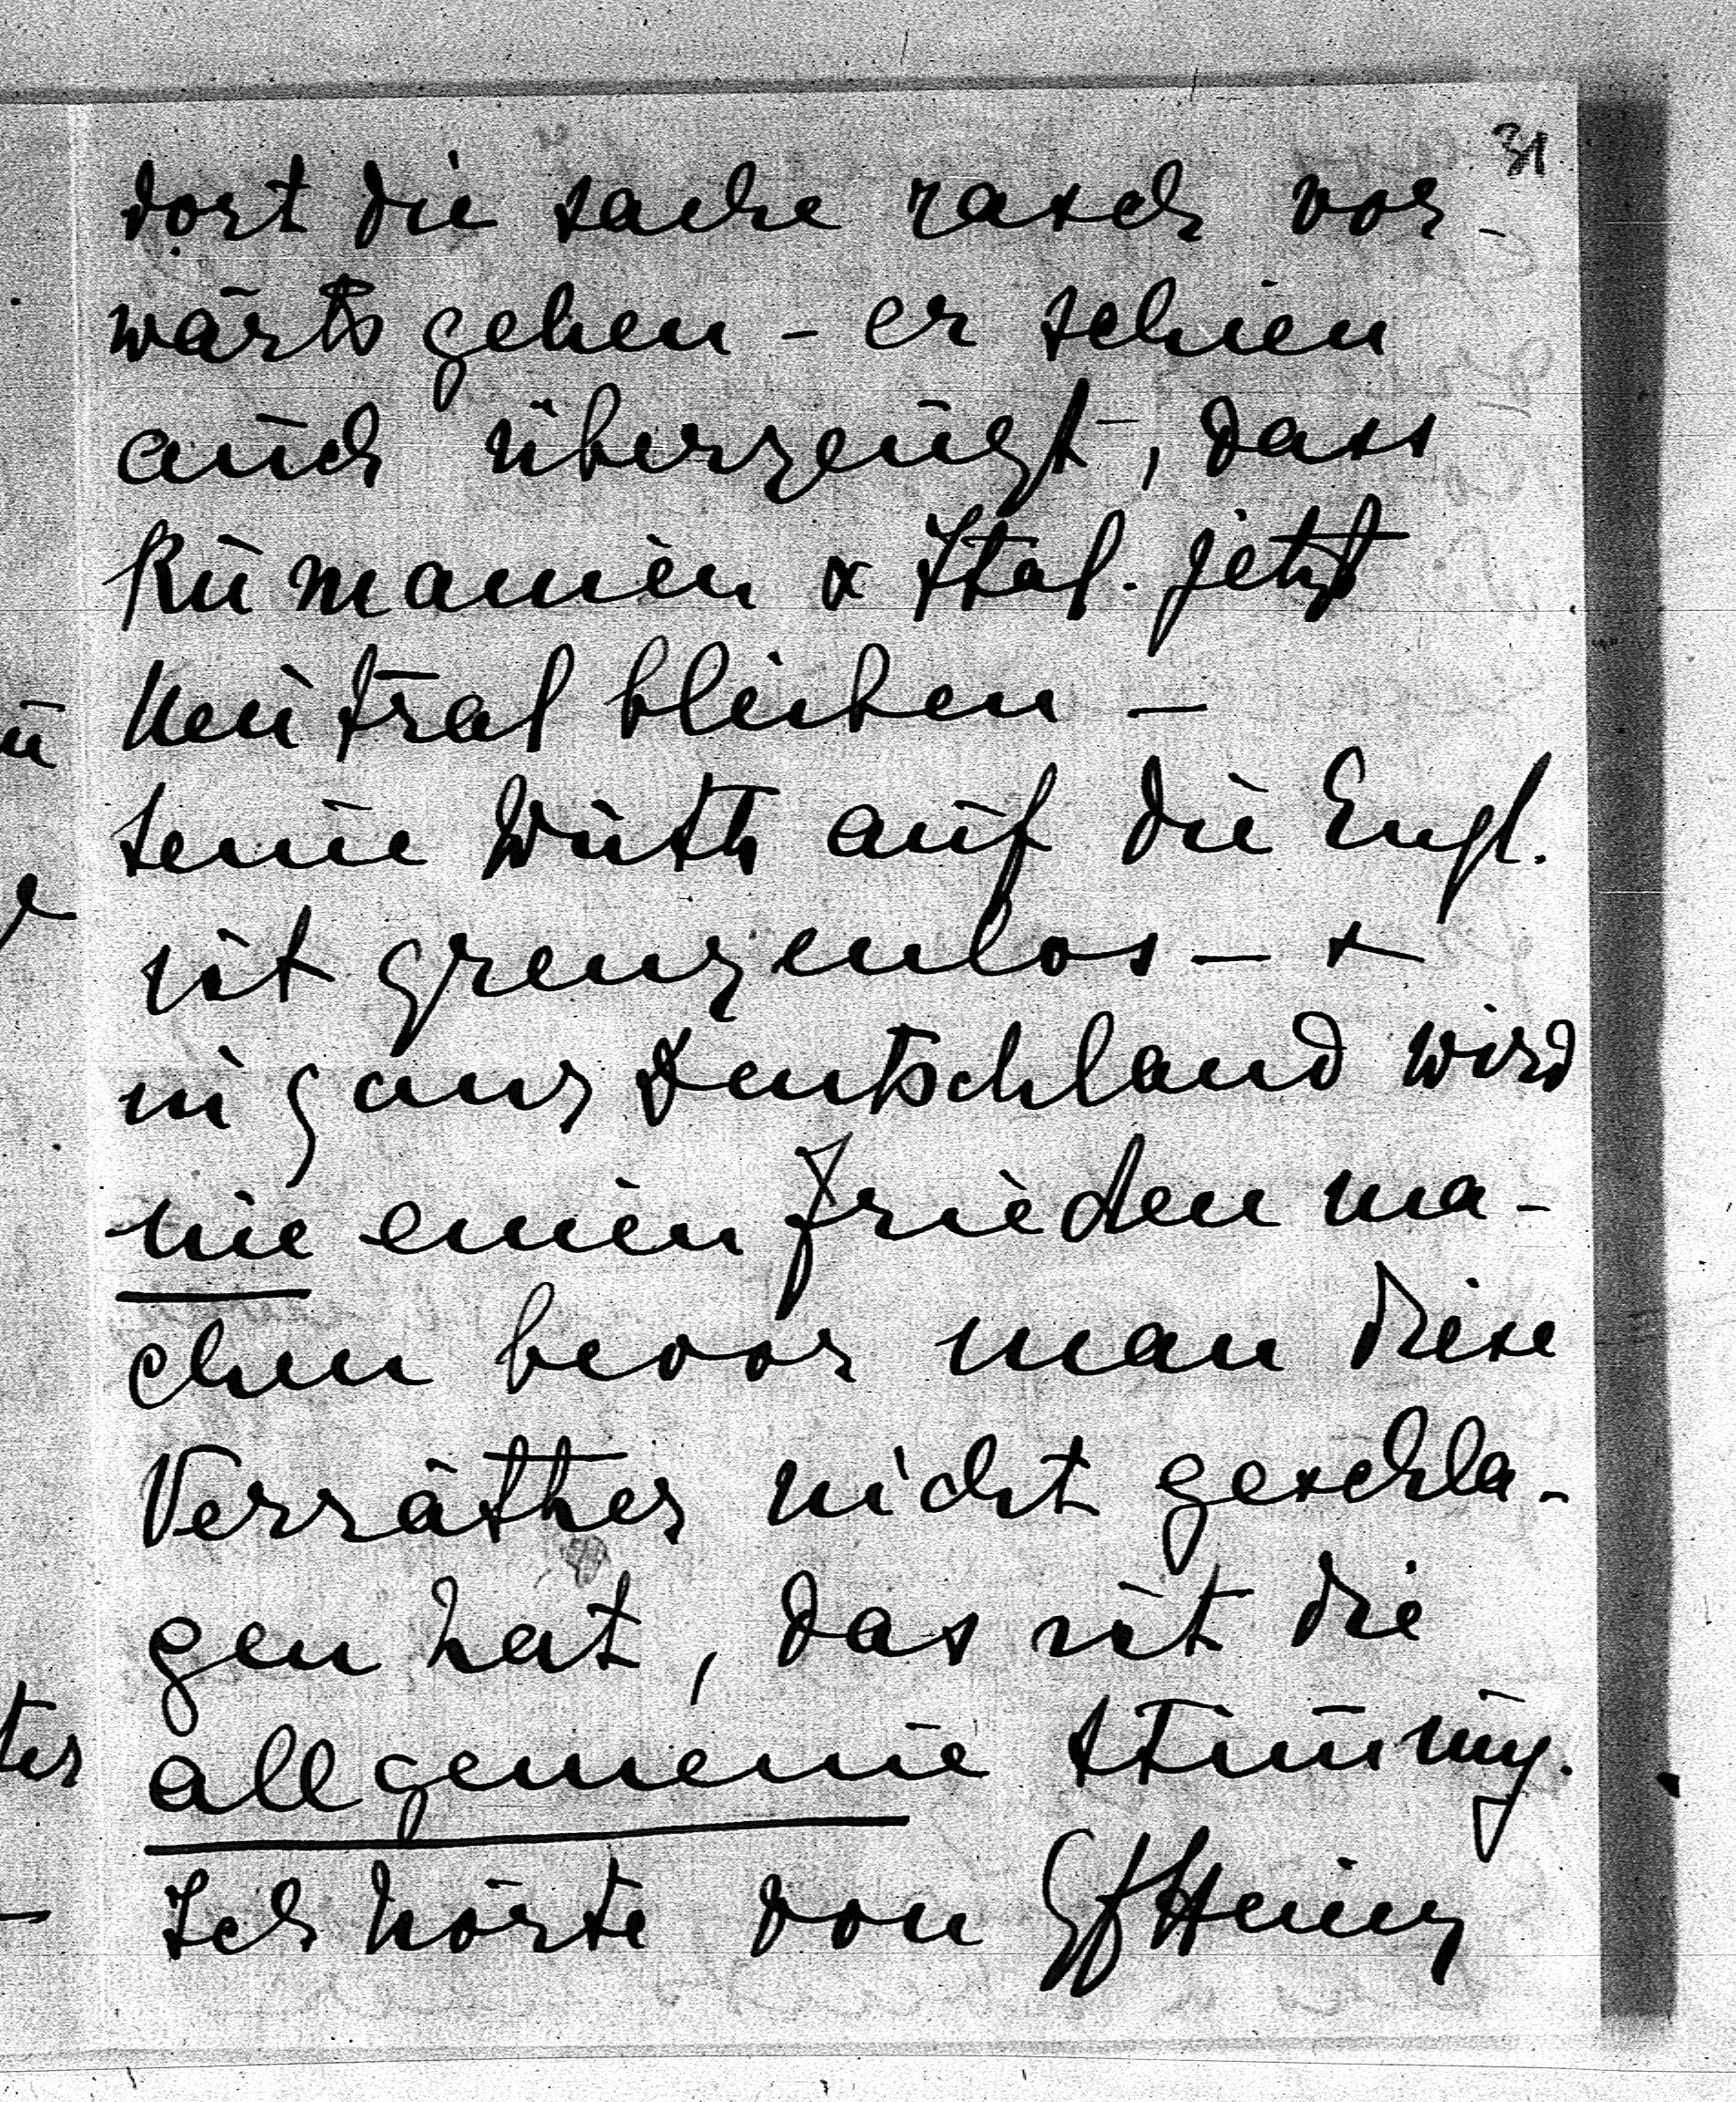 31
dort die sache rasch vor-
wärts gehen - er schien
auch überzeugt, dass
Rumanien & Ital. jetzt
neutral bleiben -
seine Wuth auf die Engl.
ist grenzenlos - +
in ganz Deutschland wird
nie einen Frieden ma-
chen bevor man diese
Verräther nicht geschla-
gen hat, das ist die
allgemeine Stimmung.
Ich hörte von Gf Heinr